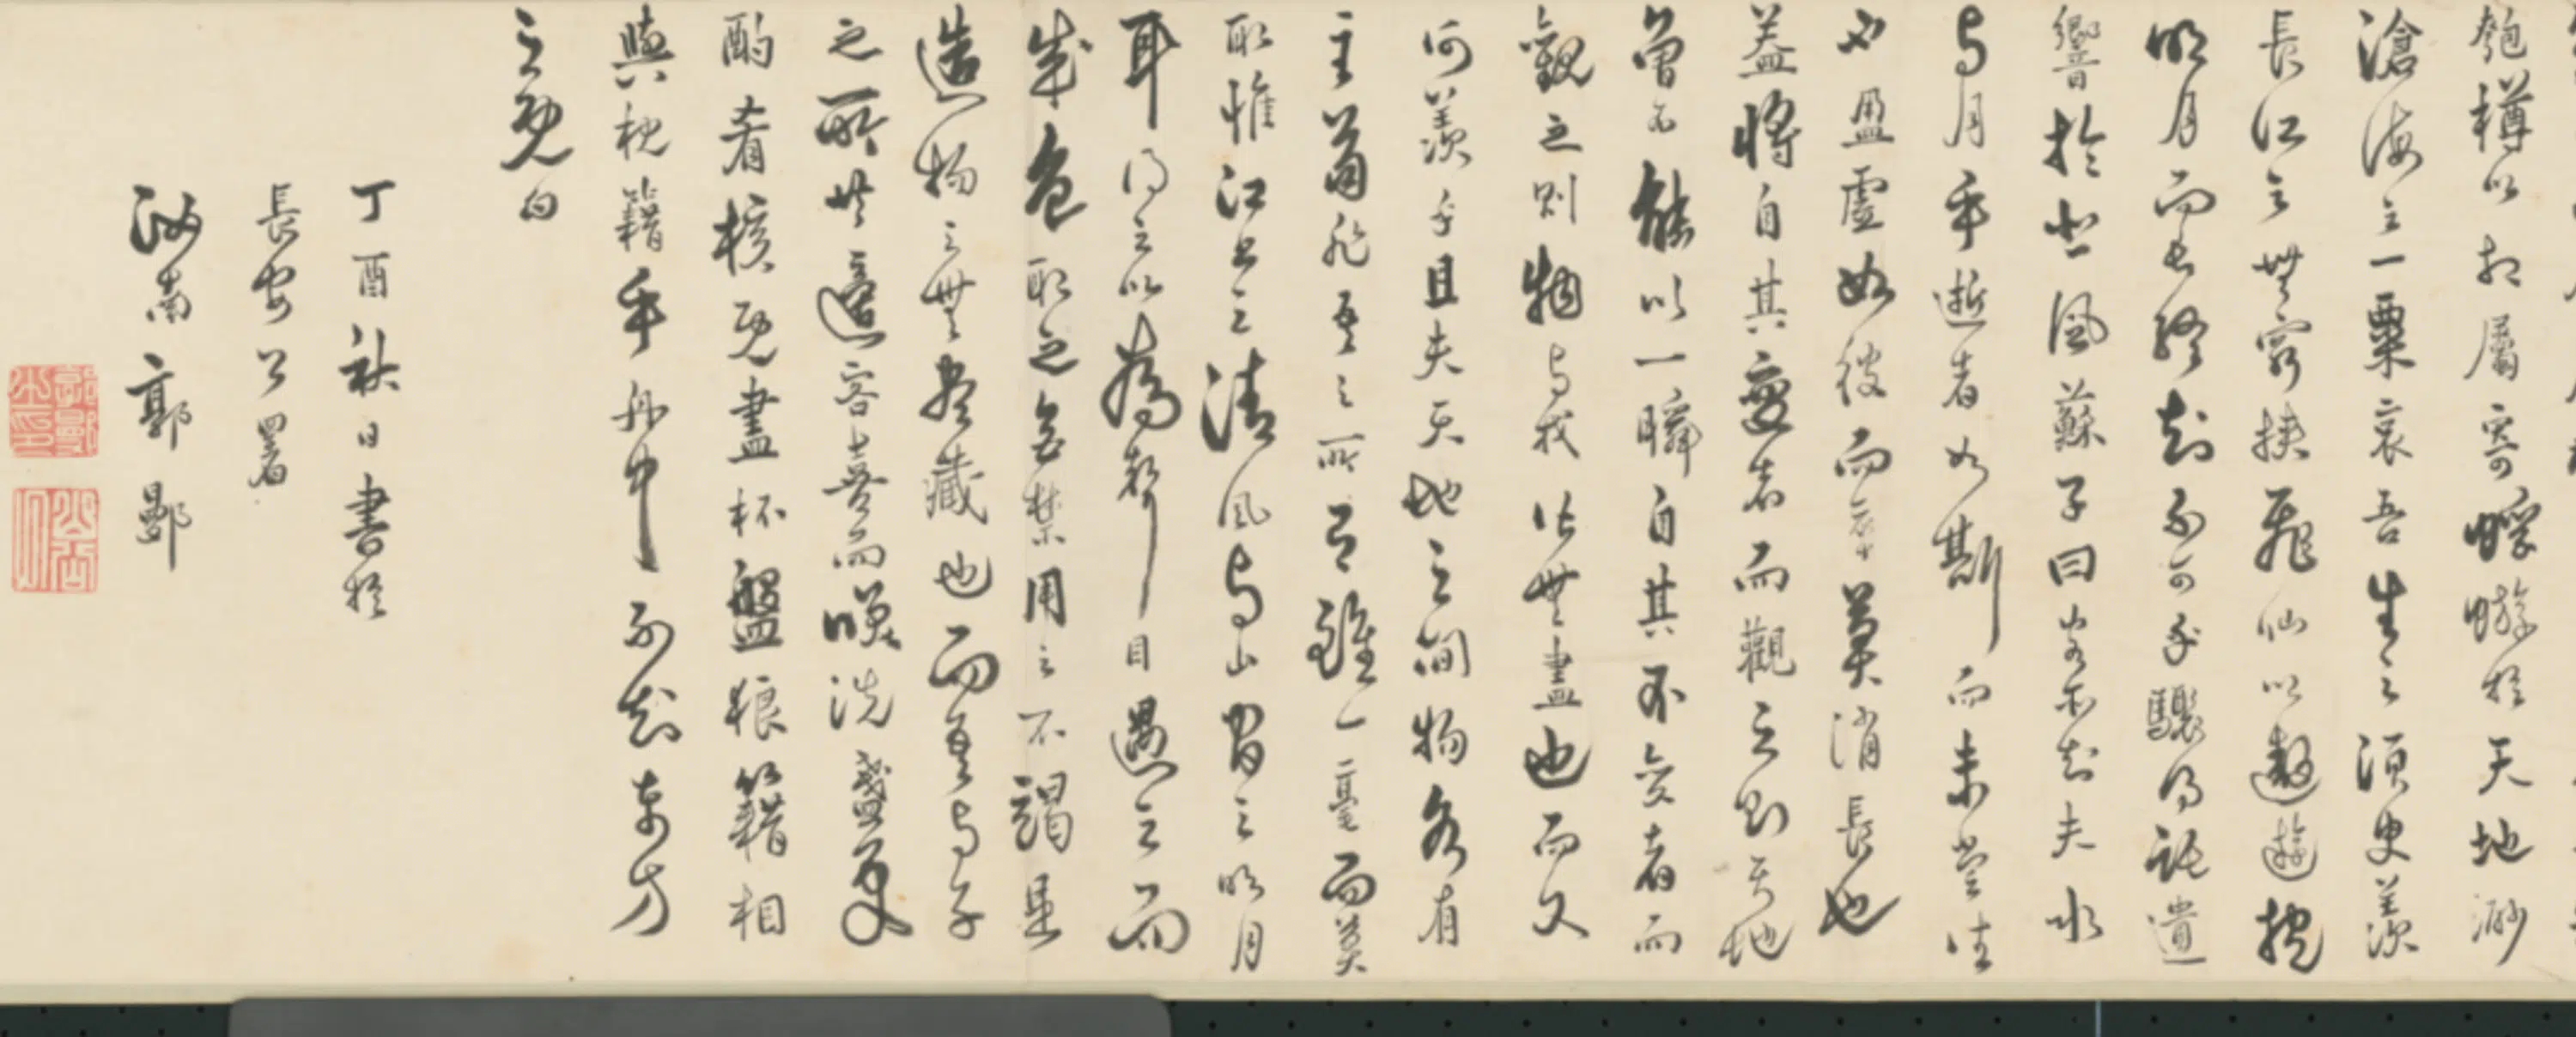 匏樽以相屬寄蜉蝣於天地渺
滄海之一粟哀吾生之須臾羨
長江之無窮挾飛仙以遨遊抱
明月而長終知不可乎驟得託遺
響於悲風蘇子曰客亦知夫水
與月乎逝者如斯而未嘗往
也盈虛如彼而卒莫消長也
蓋將自其變者而觀之則天地
曾不能以一瞬自其不變者而
觀之則物與我皆無盡也而又
何羨乎且夫天地之間物各有
主苟非吾之所有雖一毫而莫
取惟江上之清風與山間之明月
耳得之以為聲目遇之而
成色取之無禁用之不竭是
造物之無盡藏也而吾與子
之所共適客喜而笑洗盞更
酌肴核既盡杯盤狼籍相
與枕籍乎舟中不知東方
之既白
丁酉秋日書於
長安公署
郭鄤